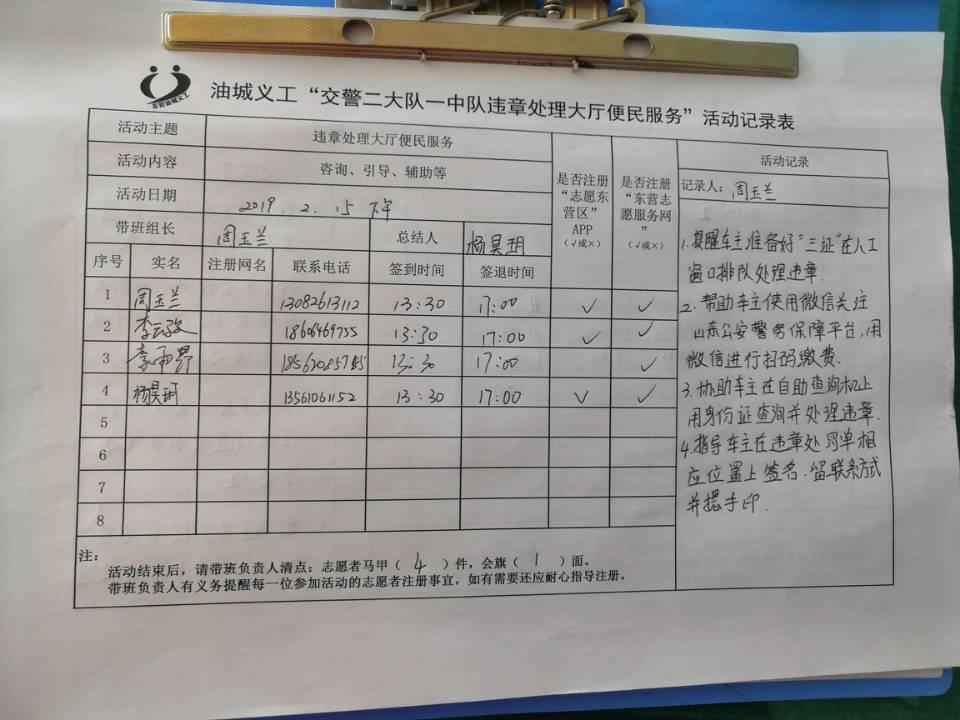 东营油城义工
油城义工“交警二大队一中队违章处理大厅便民服务”活动记录表
活动主题 违章处理大厅便民服务
活动内容 咨询、引导、辅助等
活动日期 2019.2.15 下午
带班组长 周玉兰 总结人 杨昊玥
是否注册“志愿东营区”APP(√或×)
是否注册“东营志愿服务网”(√或×)
序号 实名 注册网名 联系电话 签到时间 签退时间
1 周玉兰 13082613112 13:30 17:00 √ √
2 李云 18606469755 13:30 17:00 √ √
3 李雨昂 13:30 17:00 √
4 杨昊玥 13561061152 13:30 17:00 √ √
5
6
7
8
活动记录
记录人:周玉兰
1.提醒车主准备好“三证”在人工
窗口排队处理违章.
2.帮助车主使用微信关注
山东公安警务保障平台,用
微信进行扫码缴费.
3.协助车主在自助查询机上
用身份证查询并处理违章.
4.指导车主在违章处罚单相
应位置上签名.留联系方式
并摁手印.
注:
活动结束后,请带班负责人清点:志愿者马甲(4)件,会旗(1)面。
带班负责人有义务提醒每一位参加活动的志愿者注册事宜,如有需要还应耐心指导注册。